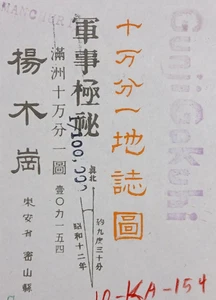 十万分一地誌圖
Gunji Gokuhi
MANCHURIA
軍事極祕
滿洲十万分一圖
壹〇九一五四
楊木崗
東安省 密山縣
眞北
約九度三十分
昭和十二年
10-KA-154